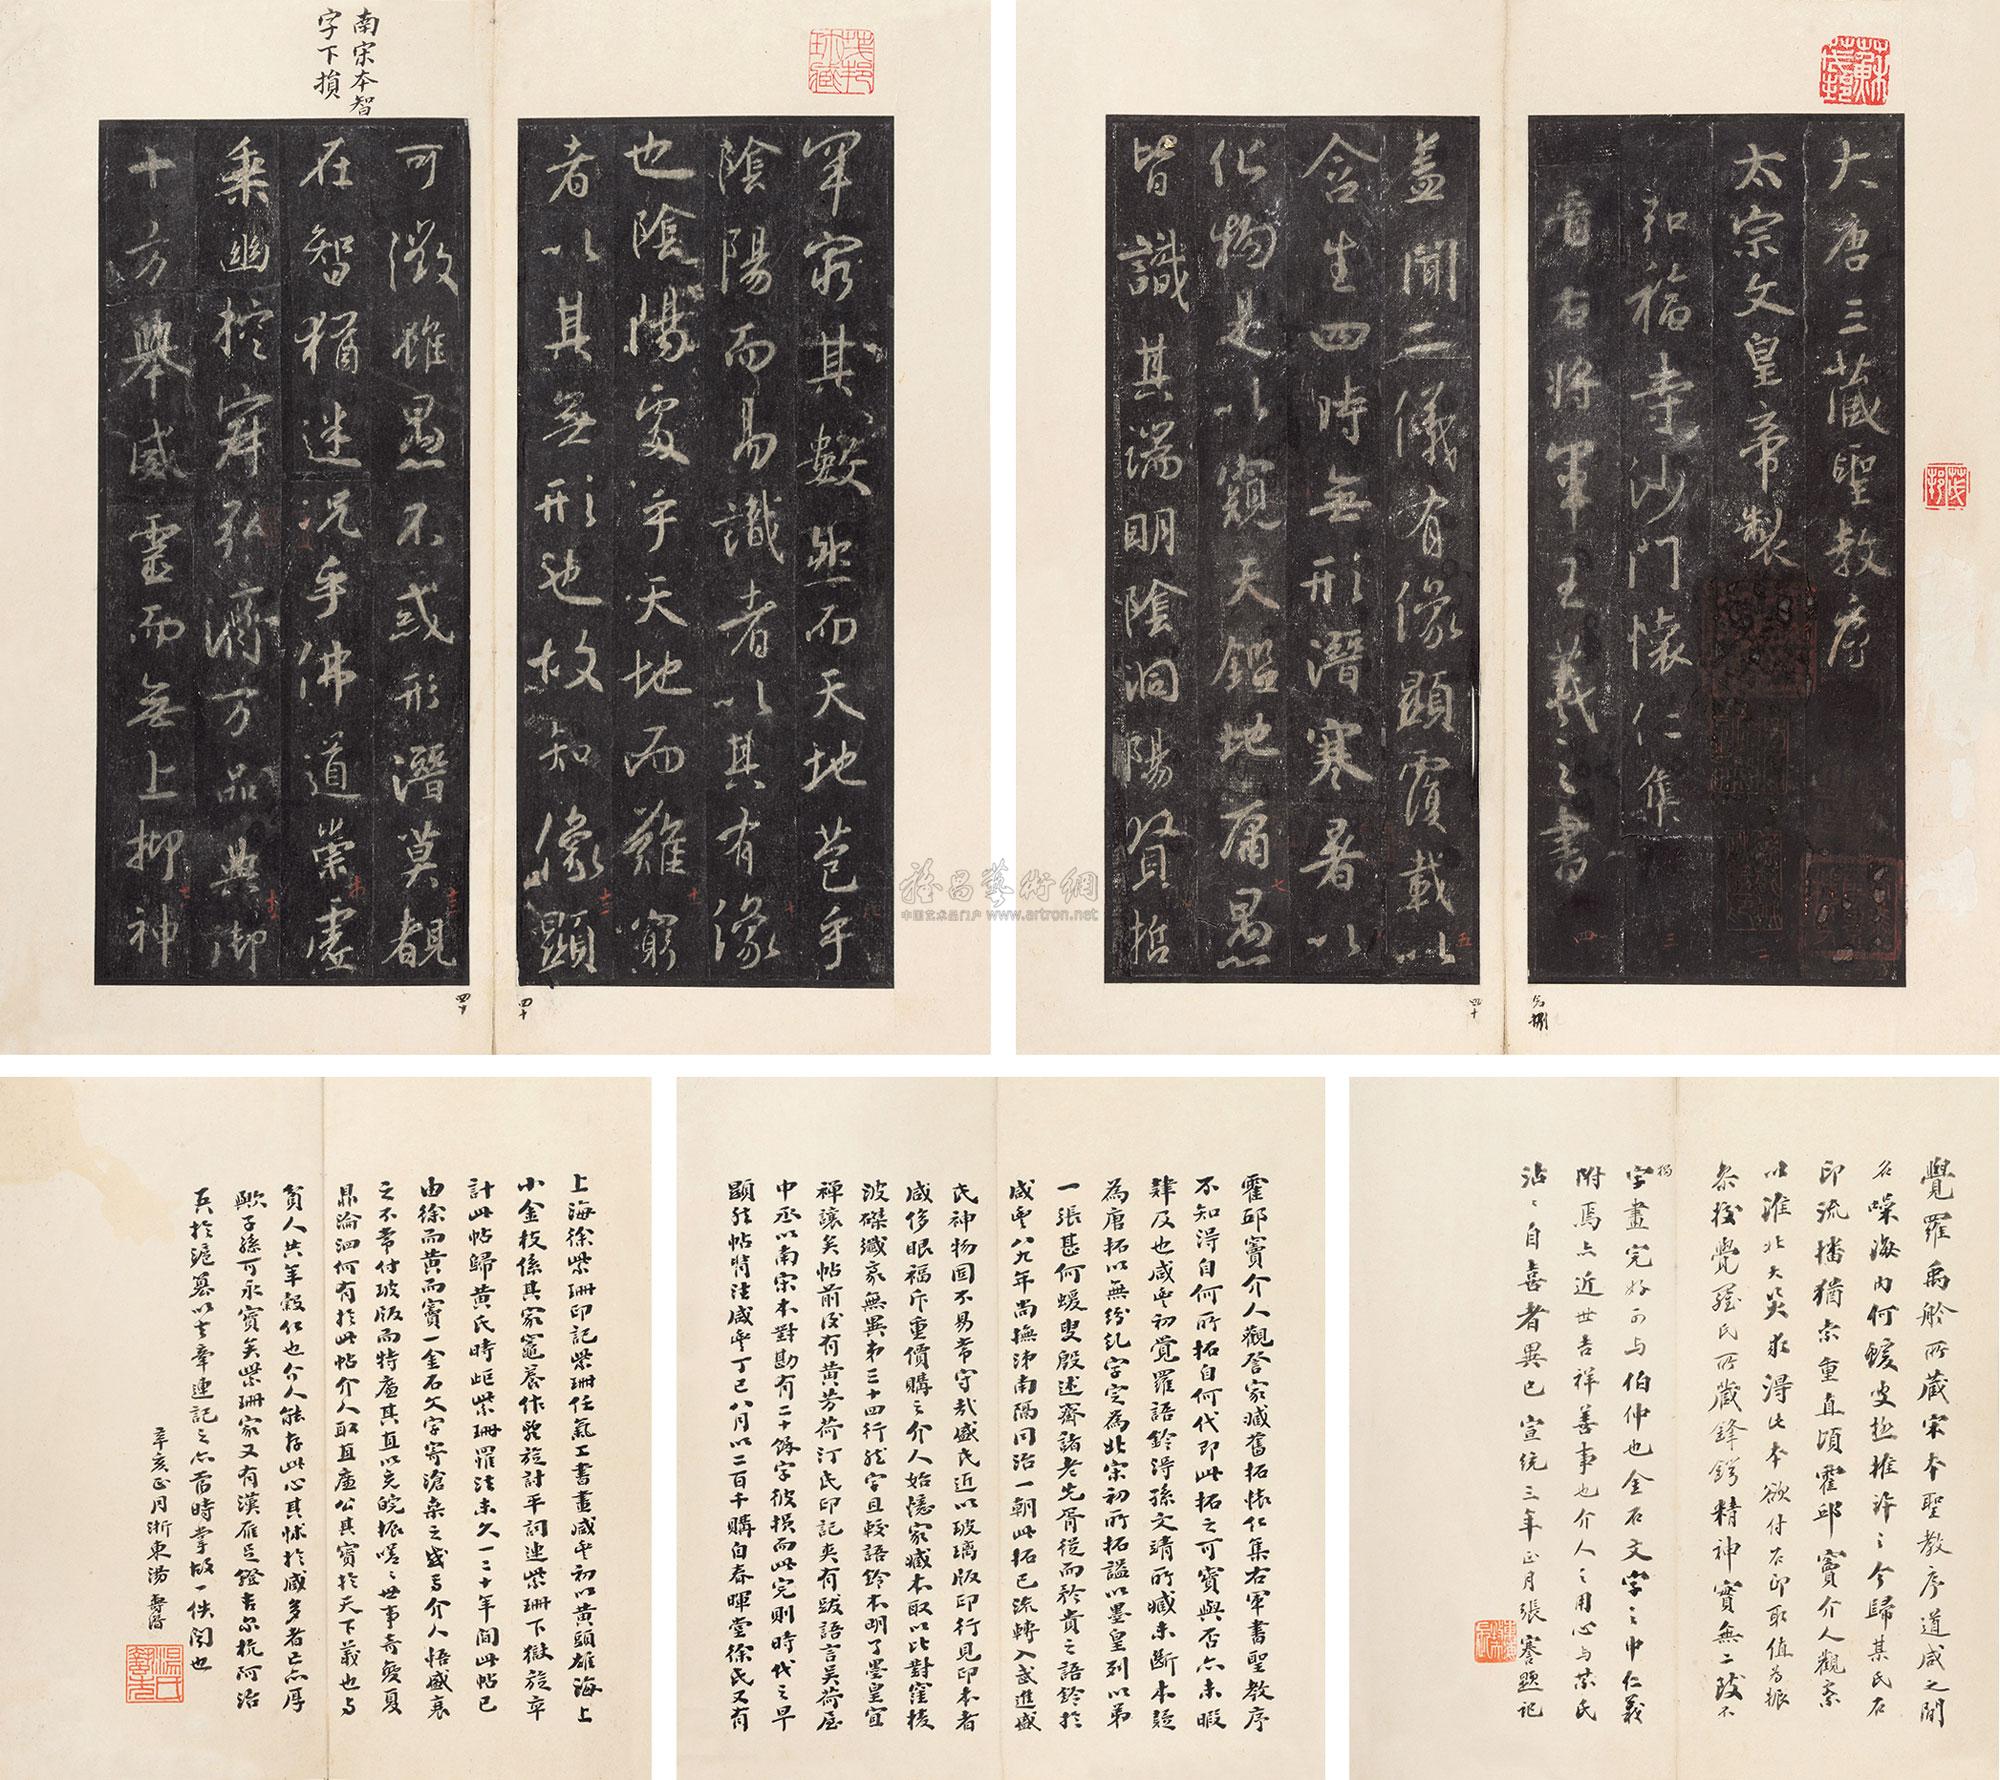 大唐三藏聖教序
太宗文皇帝製
弘福寺沙門懷仁集
晉右將軍王羲之書
蓋聞二儀有像顯覆載以
含生四時無形潛寒暑以
化物是以窺天鑑地庸愚
皆識其端明陰洞陽賢哲
罕窮其數然而天地苞乎
陰陽而易識者以其有像
也陰陽處乎天地而難窮
者以其無形也故知像顯
可徵雖愚不惑形潛莫覩
在智猶迷況乎佛道崇虛
乘幽控寂弘濟萬品典御
十方舉威靈而無上抑神
南宋本智
字下損
雅昌藝術網
中国艺术品门户 www.artron.net
覺羅禹舲所藏宋本聖教序道咸之間
名噪海內何蝯叟極推許之今歸某氏石
印流播猶索重直頃霍邱竇介人觀察
以淮北大災求得此本欲付石印取值為振
条授覺羅氏所藏鋒鍔精神實無二致不
獨
字畫完好可與伯仲也金石文字之中仁義
附焉亦近世吉祥善事也介人之用心與某氏
沾沾自喜者異已宣統三年正月張謇題記
霍邱竇介人觀詧家臧舊拓懷仁集右軍書聖教序
不知得自何所拓自何代即此拓之可寶與否亦未暇
肄及也咸豐初覺羅語鈴得孫文靖所臧未斷本疑
為唐拓以無紛糺字定為北宋初所拓謚以墨皇列以弟
一張甚何蝯叟殷述齋諸老先胥從而矜貴之語鈴於
咸豐八九年尚撫沛南隔同治一朝此拓已流轉入武進盛
氏神物固不易常守哉盛氏近以玻璃版印行見印本者
咸侈眼福斥重價購之介人始憶家臧本取以比對窪棱
波磔纖豪無異弟三十四行於字且較語鈴本明了墨皇宜
禪讓矣帖前後有黃芳荷汀氏印記夾有跋語言吳荷屋
中丞以南宋本對勘有二十餘字彼損而此完則時代之早
顯然帖背注咸豐丁巳八月以二百千購自春暉堂徐氏又有
上海徐紫珊印記紫珊任氣工書畫咸豐初以黃頭雄海上
小金枝係其家竈養作亂旋討平詞連紫珊下獄旋卒
計此帖歸黃氏時距紫珊罹法未久一二十年間此帖已
由徐而黃而竇一金石文字寄滄桑之感焉介人悟盛衰
之不常付玻版而特廉其直以充皖振嗟嗟世事奇變夏
鼎淪泗何有於此帖介人取直廉公其寶於天下義也與
貧人共年穀仁也介人能存此心其怵於咸多者已亦厚
歟子孫可永寶矣紫珊家又有漢雁足鐙吉尔杭阿治
兵於滬募以士牽連記之亦昔時掌故一佚聞也
辛亥正月浙東湯壽潛